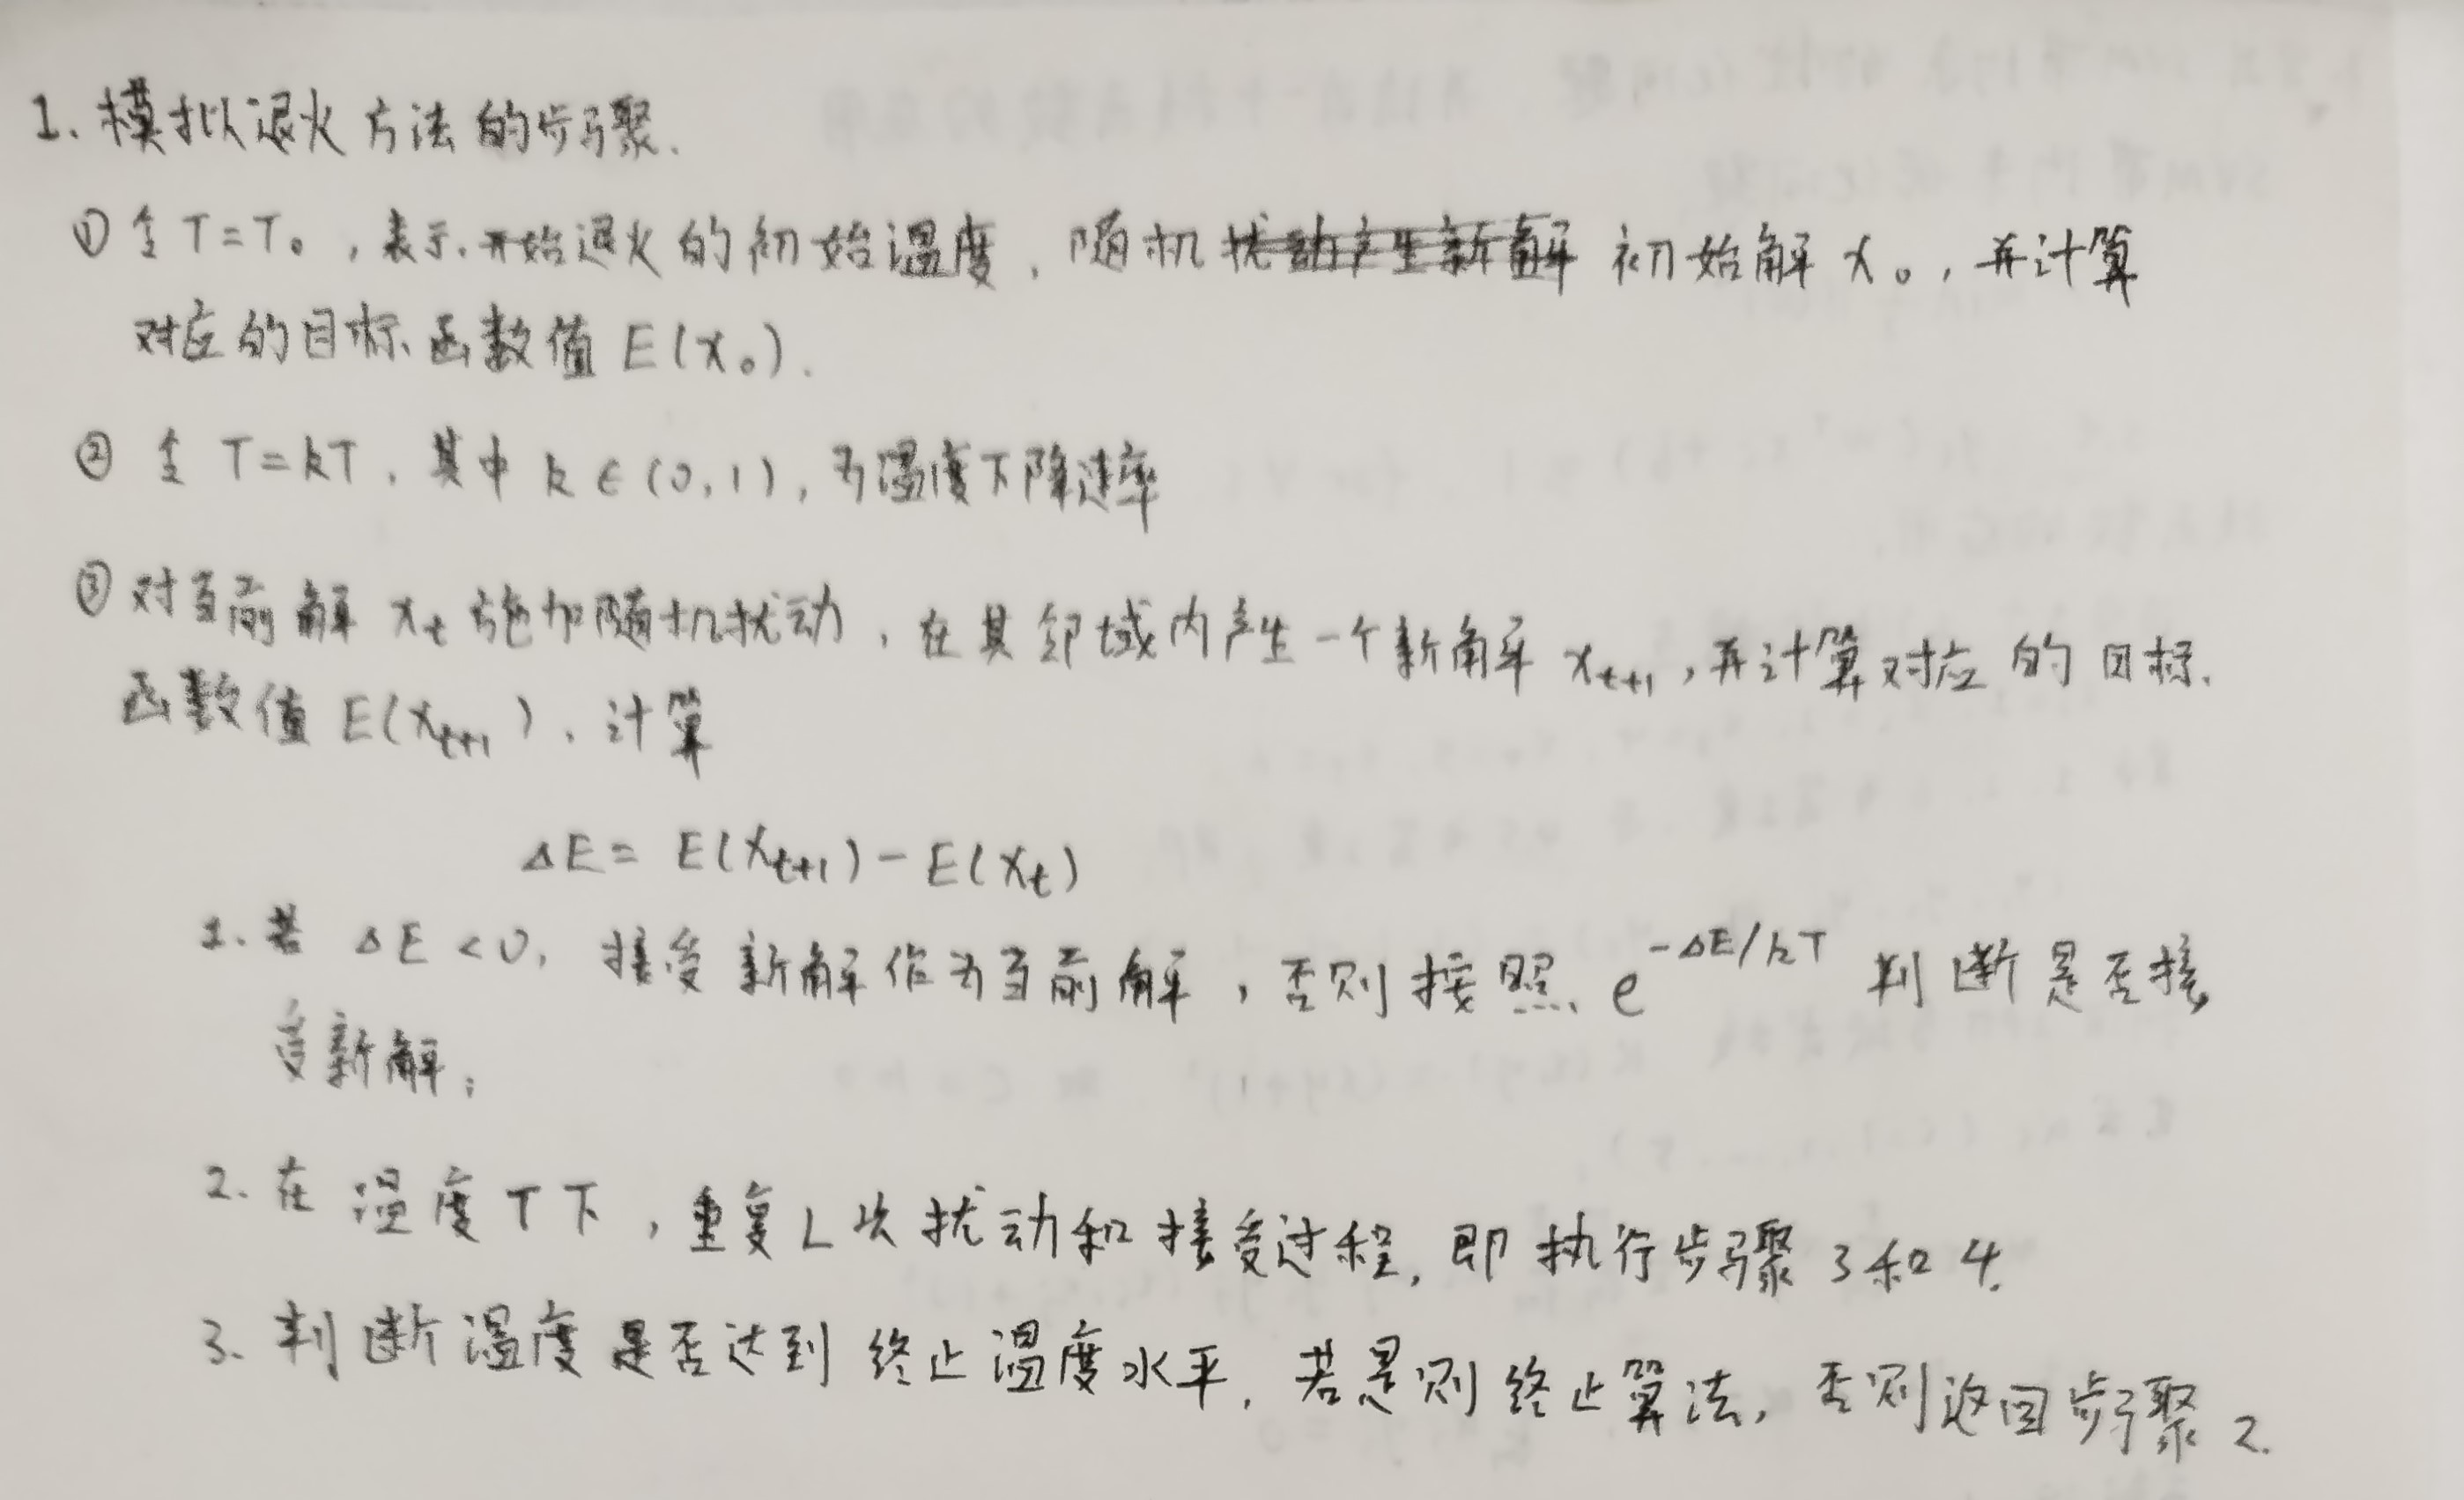 1. 模拟退火方法的步骤.
① 令 T=T₀,表示开始退火的初始温度,随机扰动产生新解 初始解 x₀,并计算
对应的目标函数值 E(x₀).
② 令 T=kT,其中 k∈(0,1),为温度下降速率
③ 对当前解 xₜ 施加随机扰动,在其邻域内产生一个新解 xₜ₊₁,并计算对应的目标
函数值 E(xₜ₊₁),计算
ΔE= E(xₜ₊₁)-E(xₜ)
1. 若 ΔE<0, 接受新解作为当前解,否则按照 e^{-ΔE/kT} 判断是否接
受新解;
2. 在温度T下,重复L次扰动和接受过程,即执行步骤3和4.
3. 判断温度是否达到终止温度水平,若是则终止算法,否则返回步骤2.